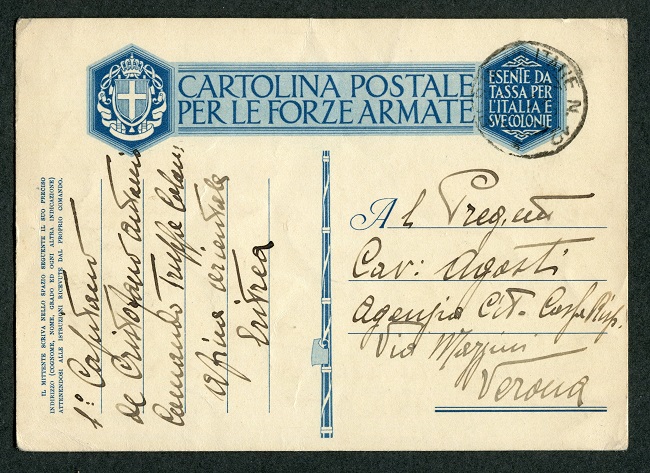 CARTOLINA POSTALE
PER LE FORZE ARMATE
ESENTE DA
TASSA PER
L'ITALIA E
SVE COLONIE
IL MITTENTE SCRIVA NELLO SPAZIO SEGUENTE IL SUO PRECISO
INDIRIZZO (COGNOME, NOME, GRADO ED OGNI ALTRA INDICAZIONE)
ATTENENDOSI ALLE ISTRUZIONI RICEVUTE DAL PROPRIO COMANDO.
1° Capitano
de Cristofaro Antonio
Comando Truppe Colon.
Africa orientale
Eritrea
Al Preg.
Cav: Agosti
Agenzia Cit.
Via Mazzini
Verona